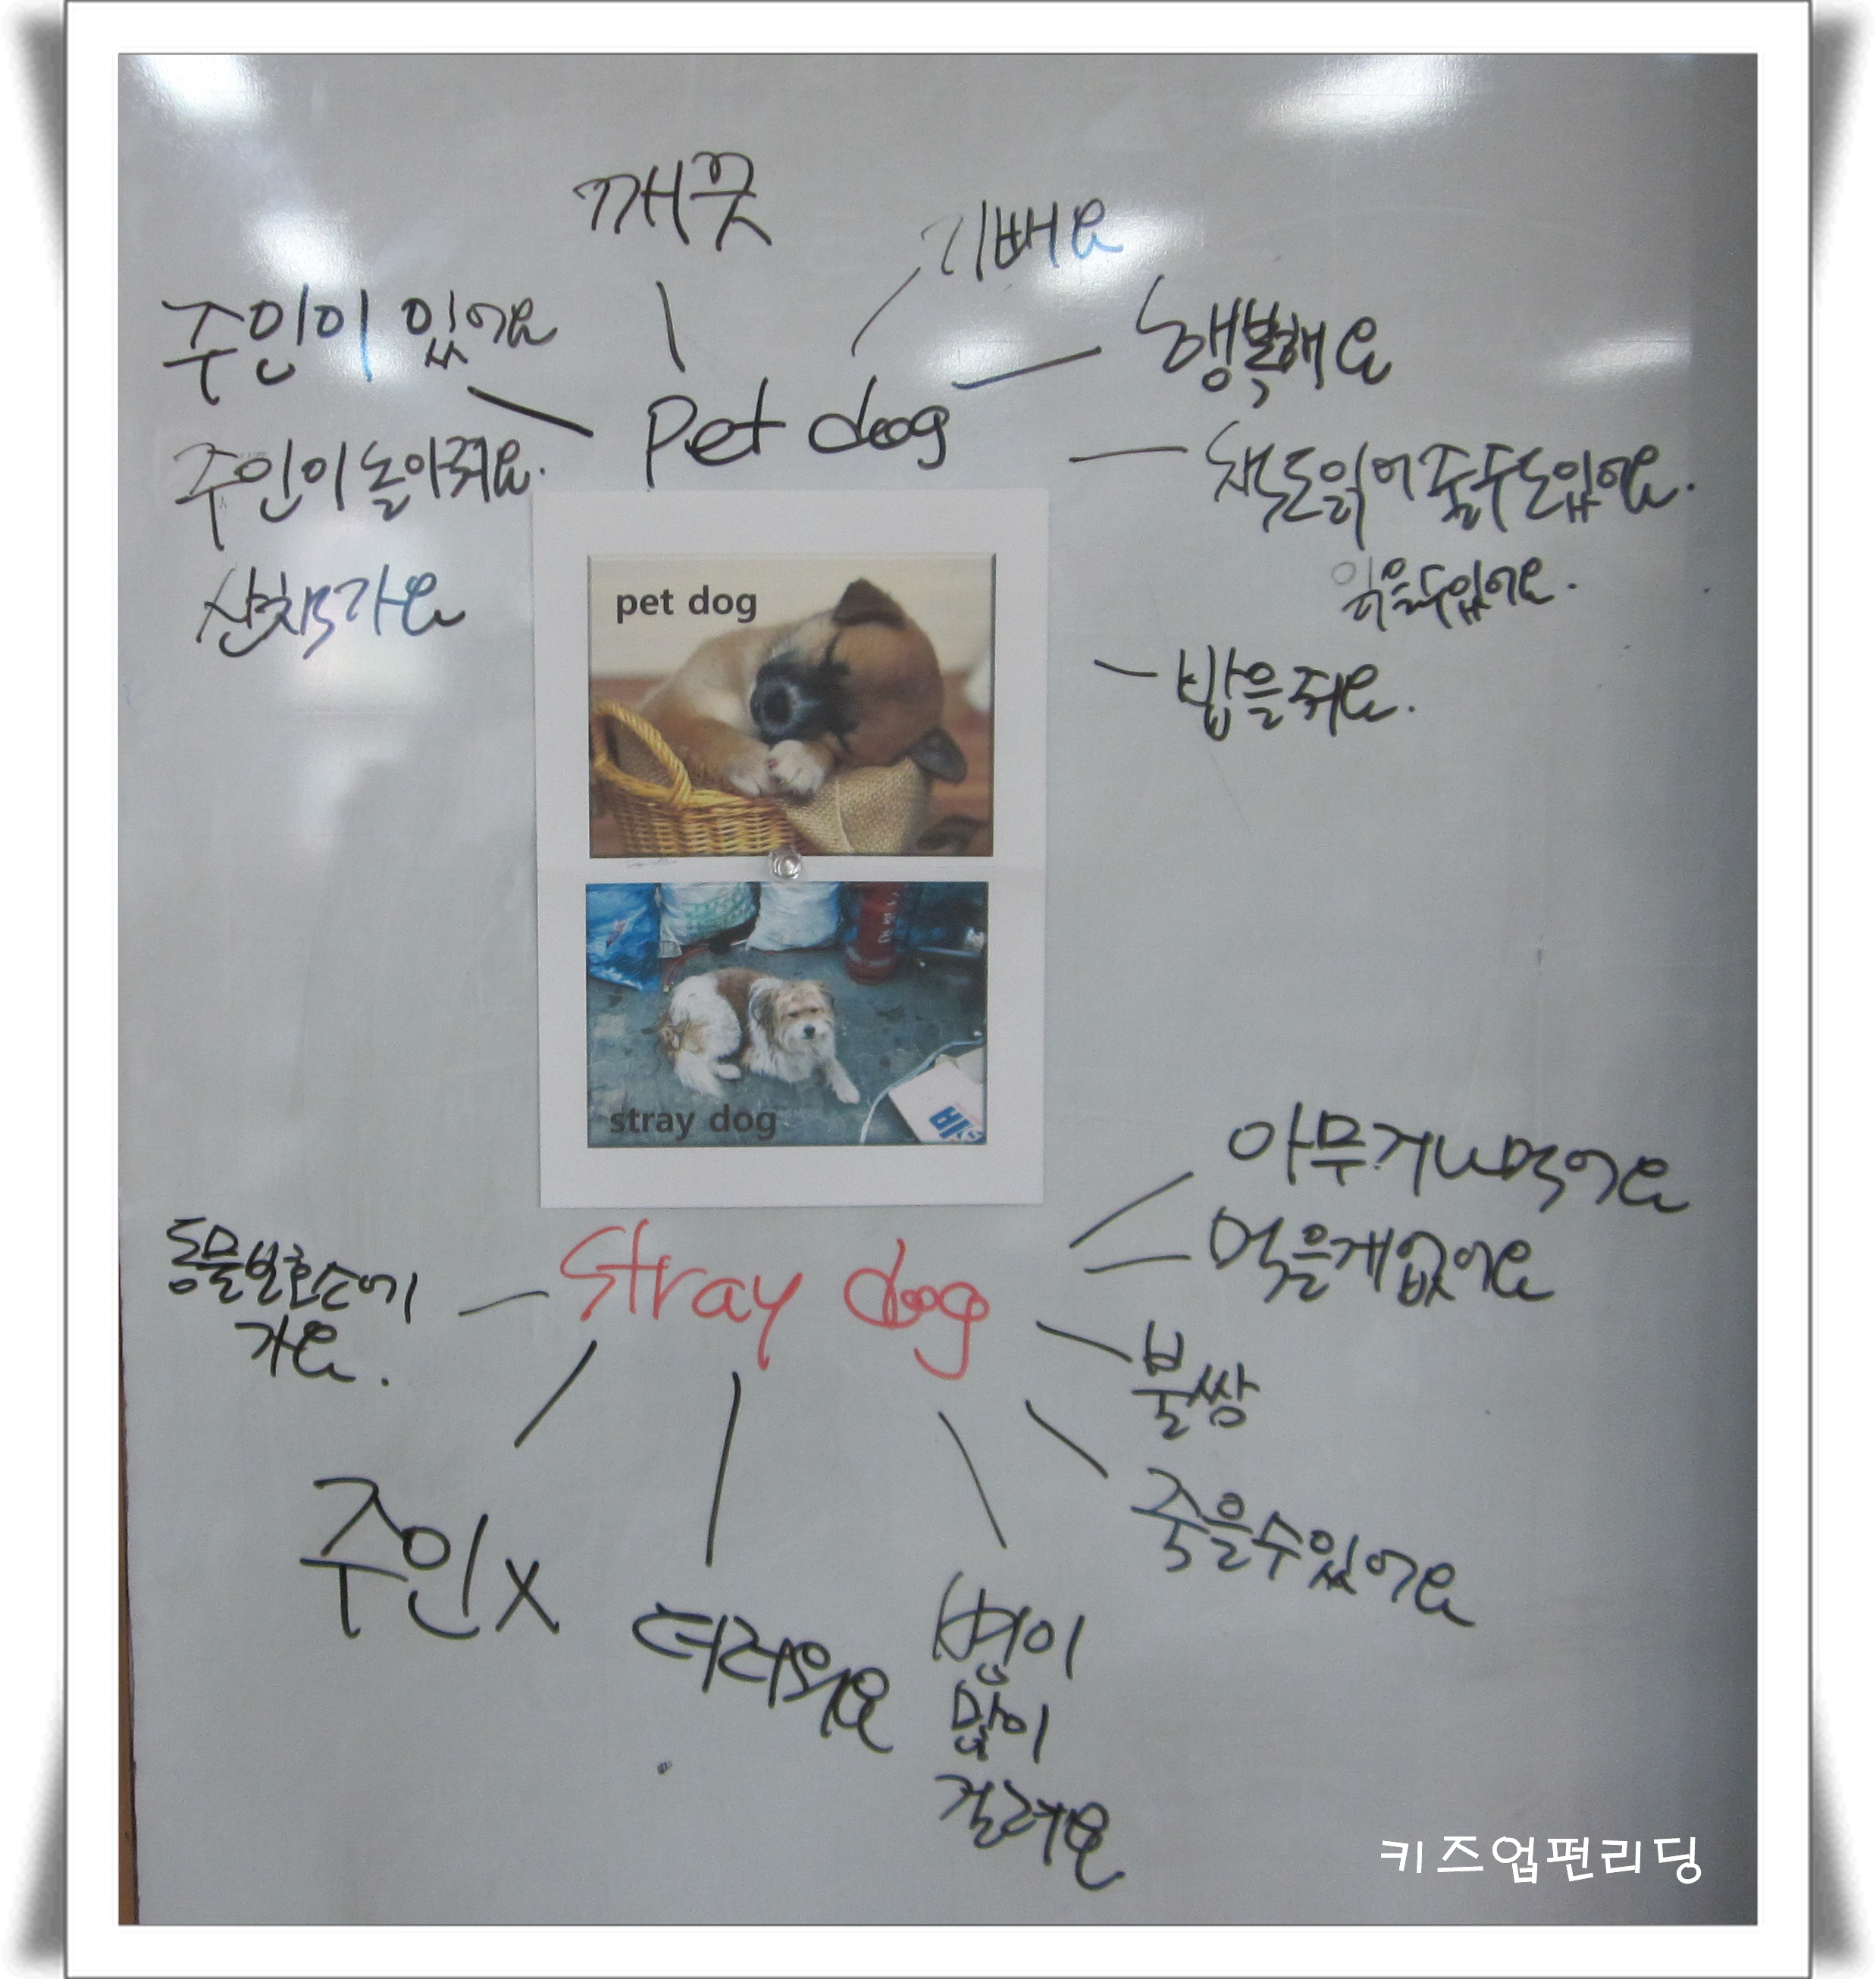 깨끗
기뻐요
주인이 있어요
행복해요
pet dog
주인이 놀아줘요.
책도 읽어 줄 수도 있어요.
산책가요
읽을 수 있어요.
밥을 줘요.
pet dog
stray dog
아무거나 먹어요
먹을게 없어요
stray dog
동물보호소에
가요.
불쌍
주인 X
죽을 수 있어요
더러워요
병이
많이
걸려요
키즈업펀리딩